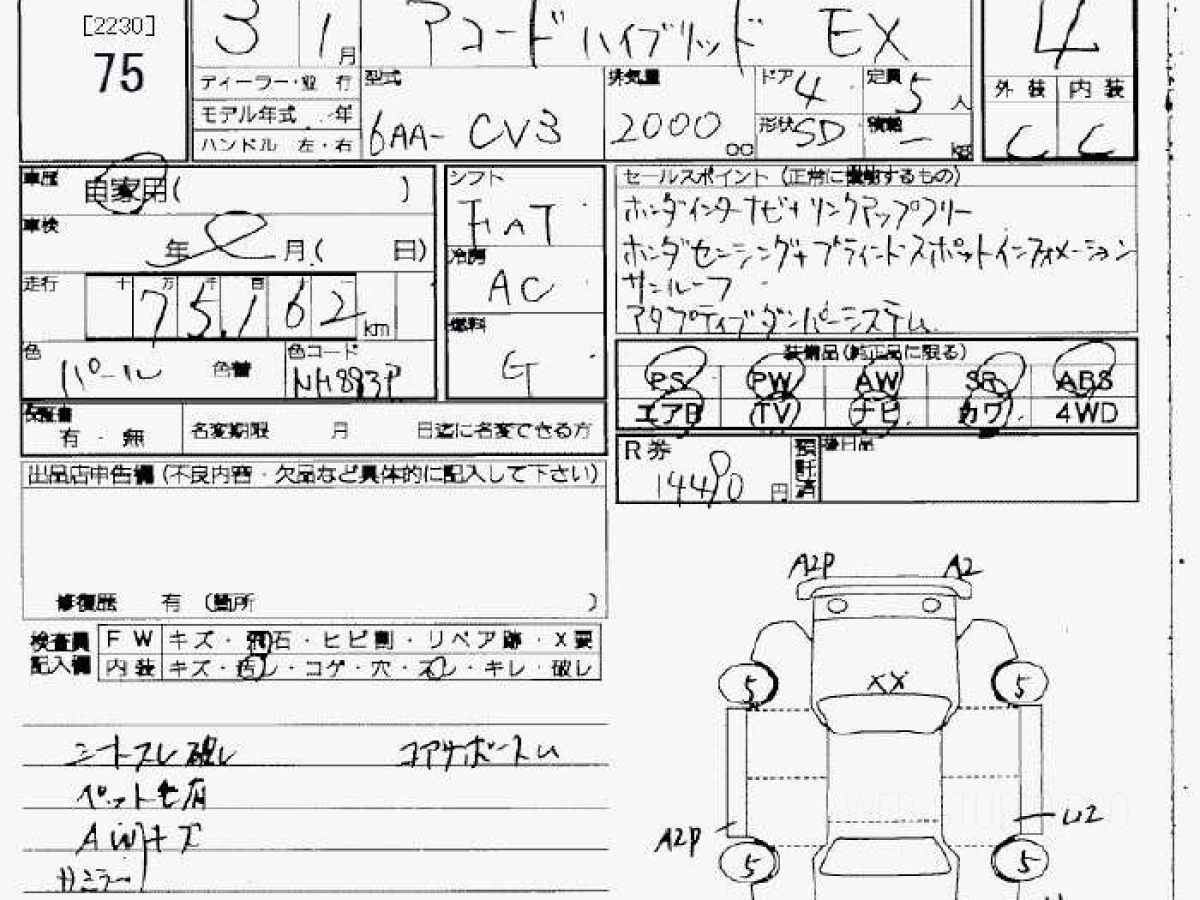 [2230]
75
3 1月
アコードハイブリッド EX
4
ディーラー・並 行
モデル年式 . 年
ハンドル 左・右
型式
6AA- CV3
排気量
2000 cc
ドア 4
定員 5 人
形状 SD
積載 - kg
外装 C
内装 C
車歴 自家用( )
車検
年 月( 日)
走行 75,162 km
色 パール 色替
色コード NH883P
シフト
FAT
冷房
AC
燃料
G
セールスポイント(正常に機能するもの)
ホンダインターナビ+リンクアップフリー
ホンダセンシング+ブラインドスポットインフォメーション
サンルーフ
アダプティブダンパーシステム
装備品(純正品に限る)
PS PW AW SR ABS
エアB TV ナビ カワ 4WD
保証書
有・無
名変期限 月 日迄に名変できる方
R券
14490 円
預託済
後日品
出品店申告欄(不良内容・欠品など具体的に記入して下さい)
修復歴 有 (箇所 )
検査員
記入欄
FW キズ・飛石・ヒビ割・リペア跡・X要
内装 キズ・汚レ・コゲ・穴・スレ・キレ・破レ
シートスレ破レ
ペット毛有
AWキズ
A2P A2
XX
5 5
A2P U2
5 5